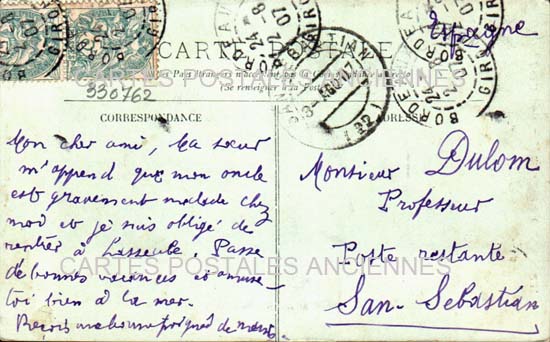 Espagne
CARTE POSTALE
(Se renseigner à la Poste
330762
CORRESPONDANCE
ADRESSE
BORDEAUX
GIRONDE
CARTES POSTALES ANCIENNES
Mon cher ami, ta sœur
m'apprend que mon oncle
est gravement malade chez
moi et je suis obligé de
rentrer à Lasseube. Passe
de bonnes vacances et amuse-
toi bien à la mer.
Reçois ma bonne poignée de mains.
Monsieur Dulom
Professeur
Poste restante
San-Sebastián
CARTES POSTALES ANCIENNES